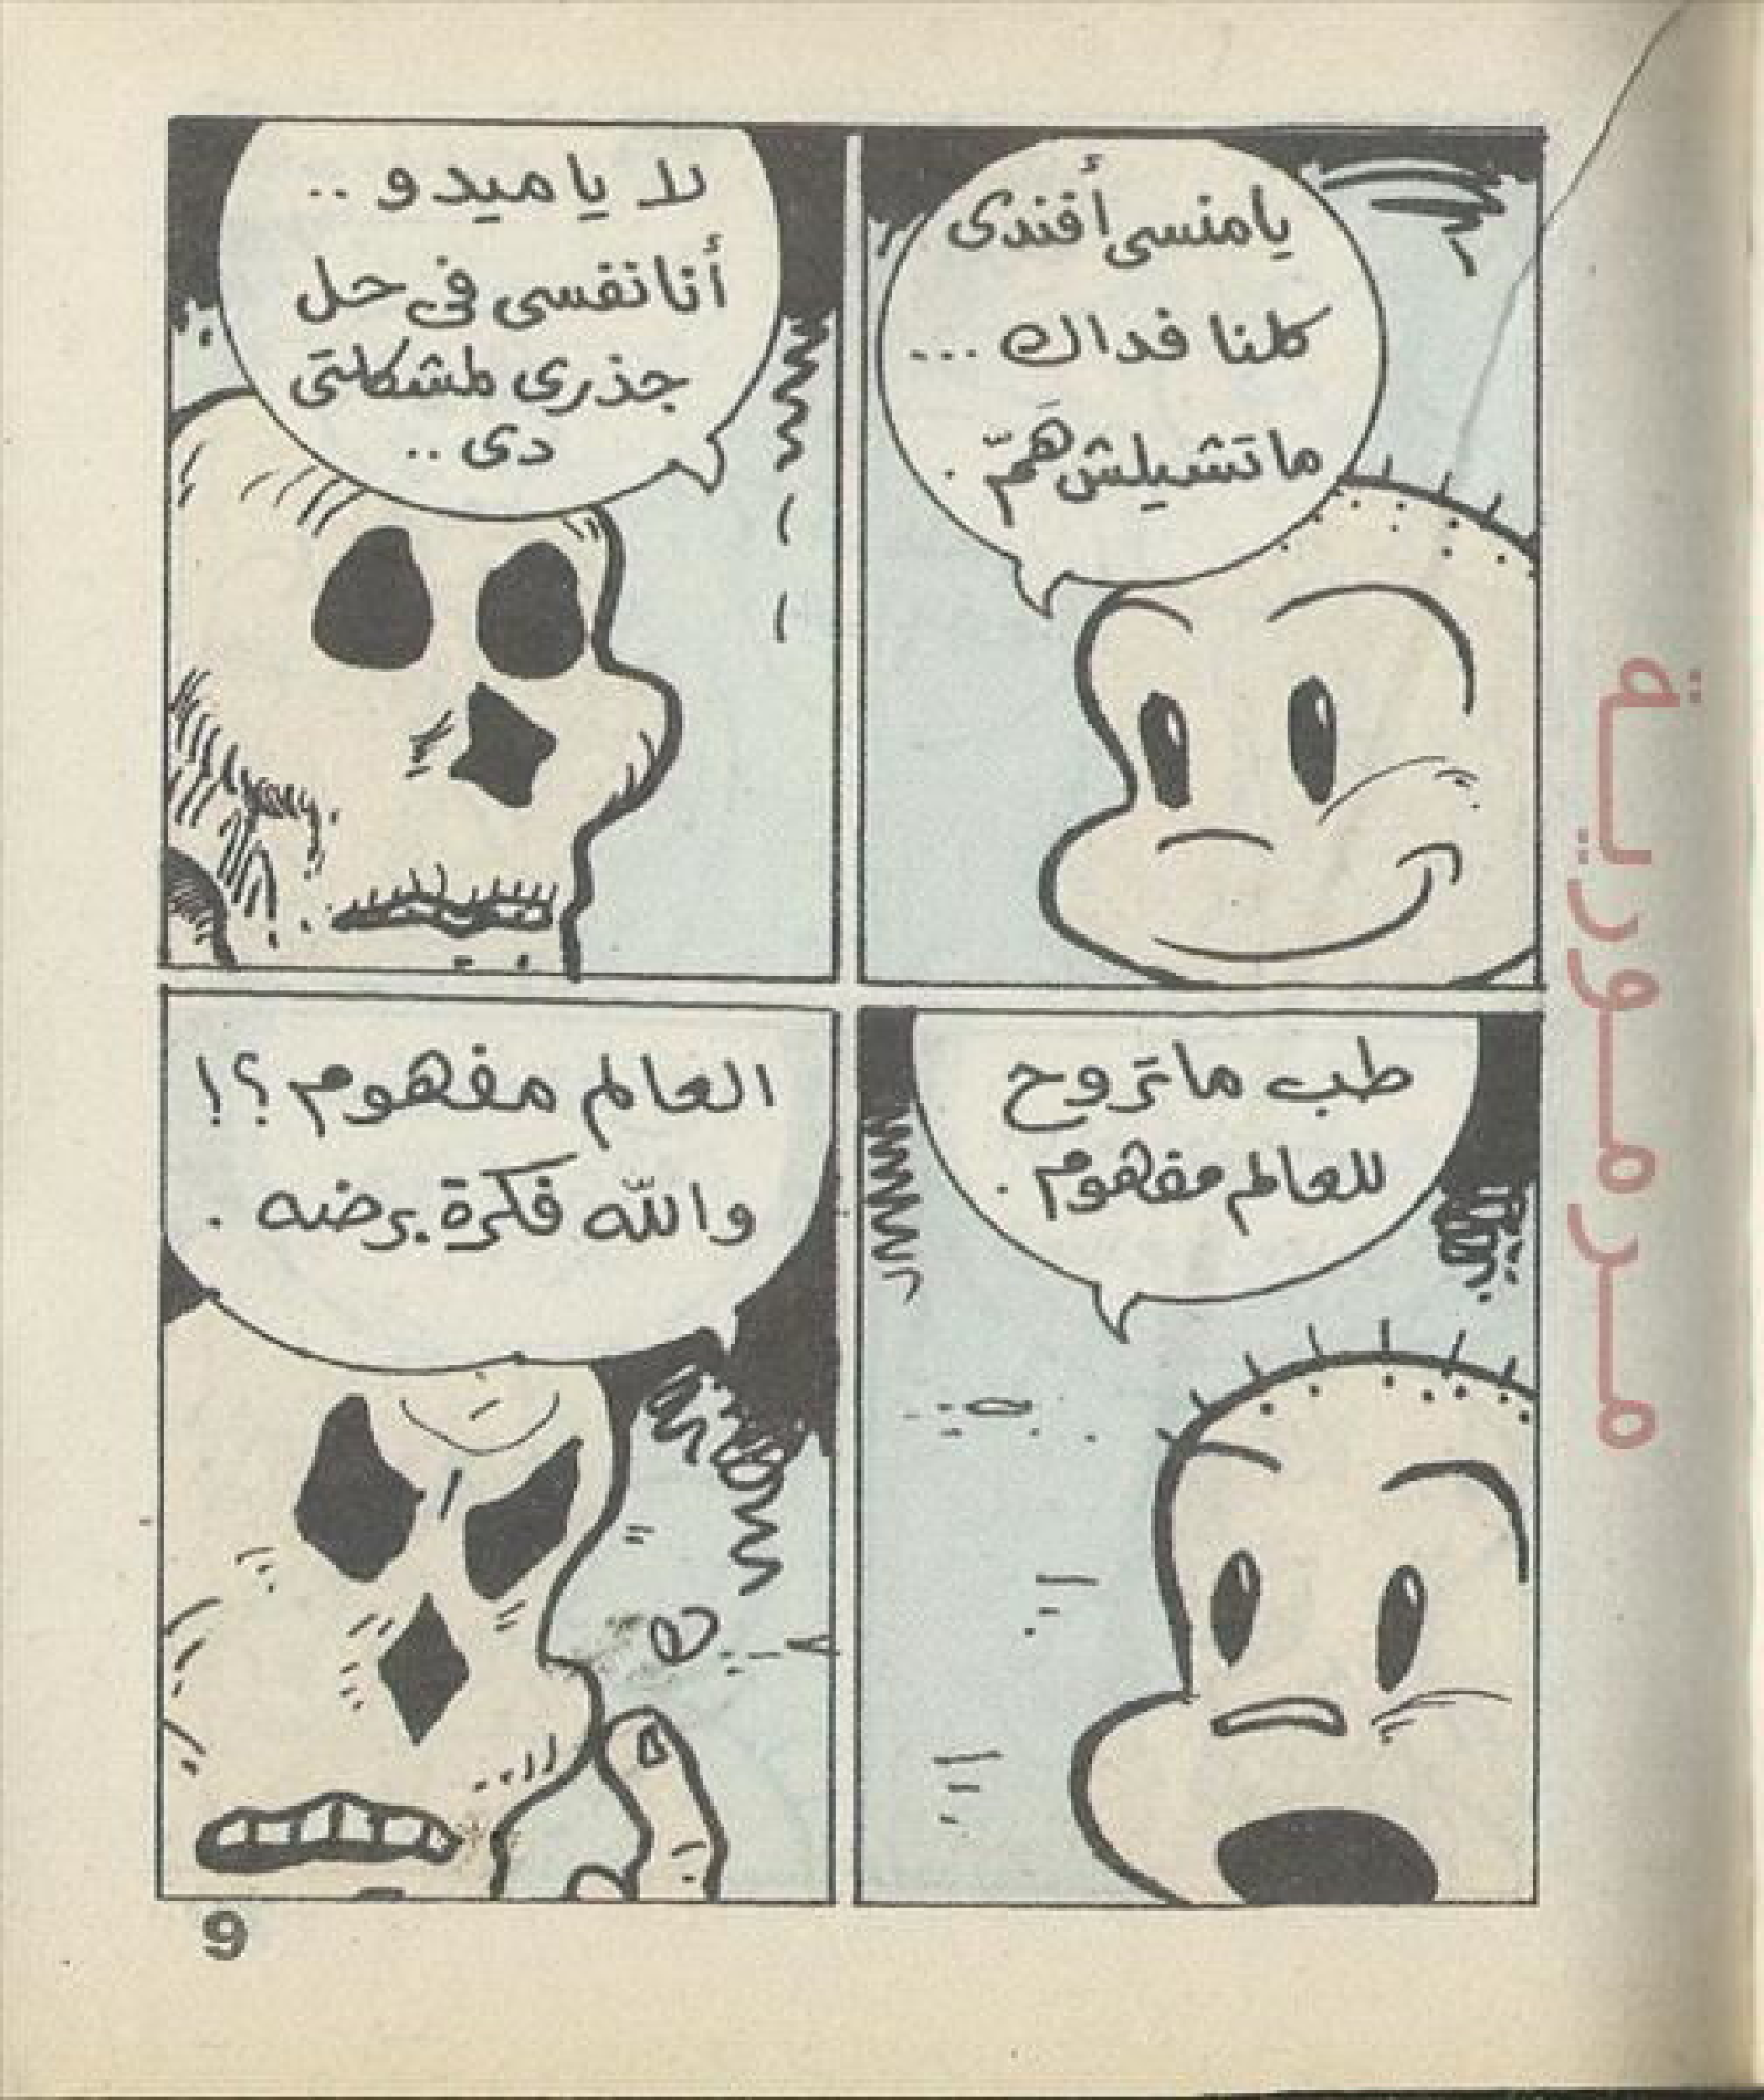 يا منسى أفندى
كلنا فداك ...
ماتشيلش هَمّ .
لا يا ميدو ..
أنا نفسى فى حل
جذرى لمشكلتى
دى ..
طب ماتروح
للعالم مفهوم .
العالم مفهوم ؟!
والله فكرة برضه .
9
مرمورية